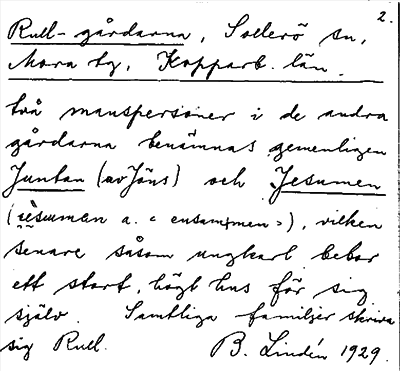 2.
Rull-gårdarna, Sollerö sn,
Mora tg, Kopparb. län.
två manspersoner i de andra
gårdarna benämnas gemenligen
Juntan (av Jöns) och Jesumen
(jèsuman a. "ensammen"), vilken
senare såsom ungkarl bebor
ett stort, högt hus för sig
själv. Samtliga familjer skriva
sig Rull. B. Lindén 1929.